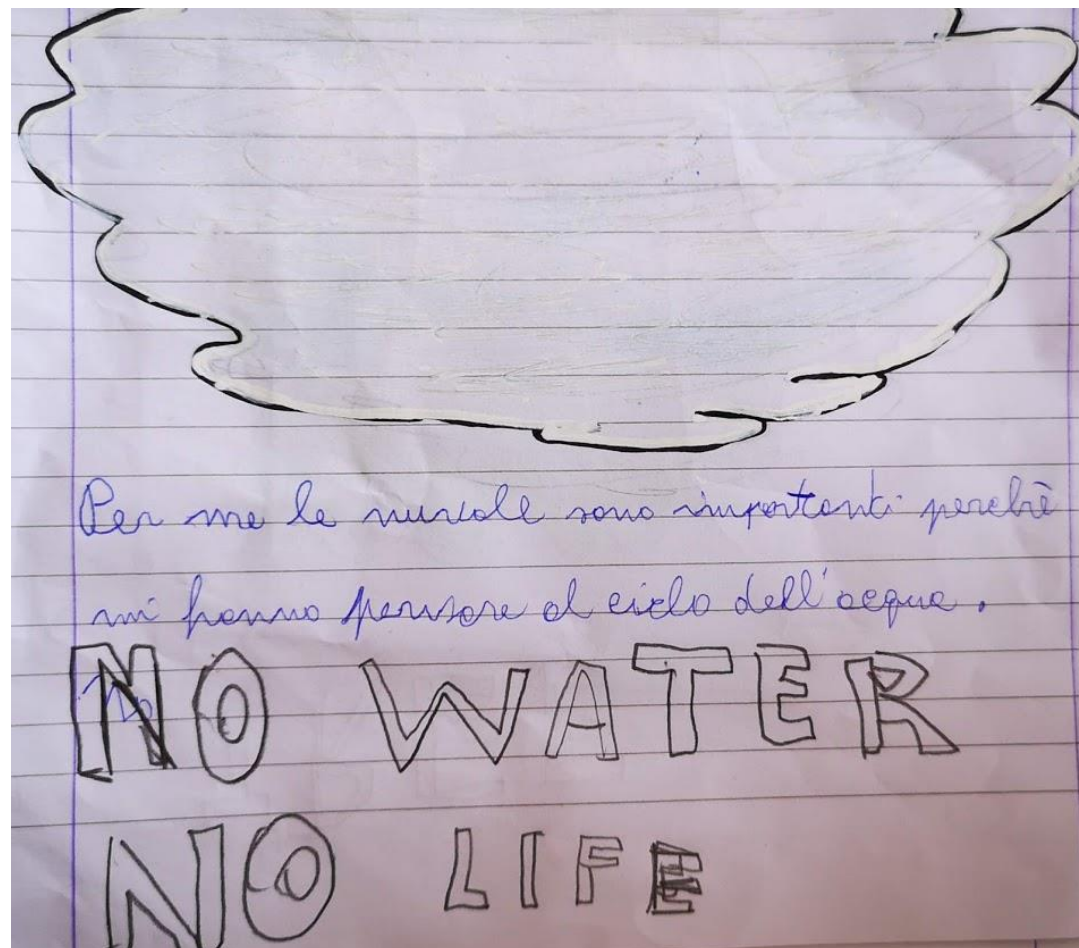 Per me le nuvole sono importanti perchè
mi fanno pensare al ciclo dell'acqua.
NO WATER
NO LIFE